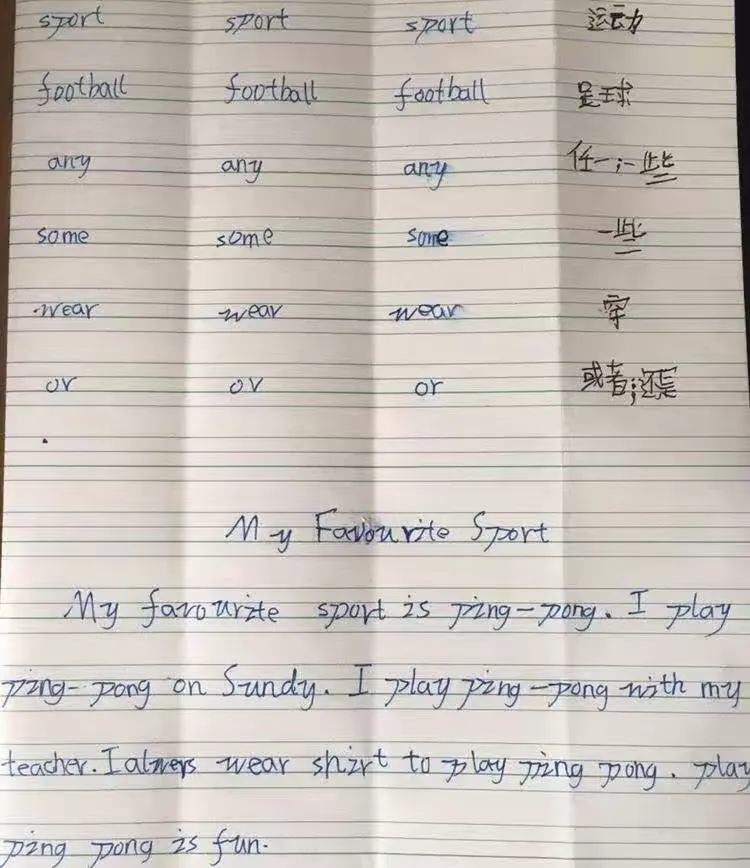 sport sport sport 运动
football football football 足球
any any any 任一;一些
some some some 一些
wear wear wear 穿
or or or 或者;还是
My Favourite Sport
My favourite sport is ping-pong. I play
ping-pong on Sundy. I play ping-pong with my
teacher. I alwers wear shirt to play ping pong. play
ping pong is fun.